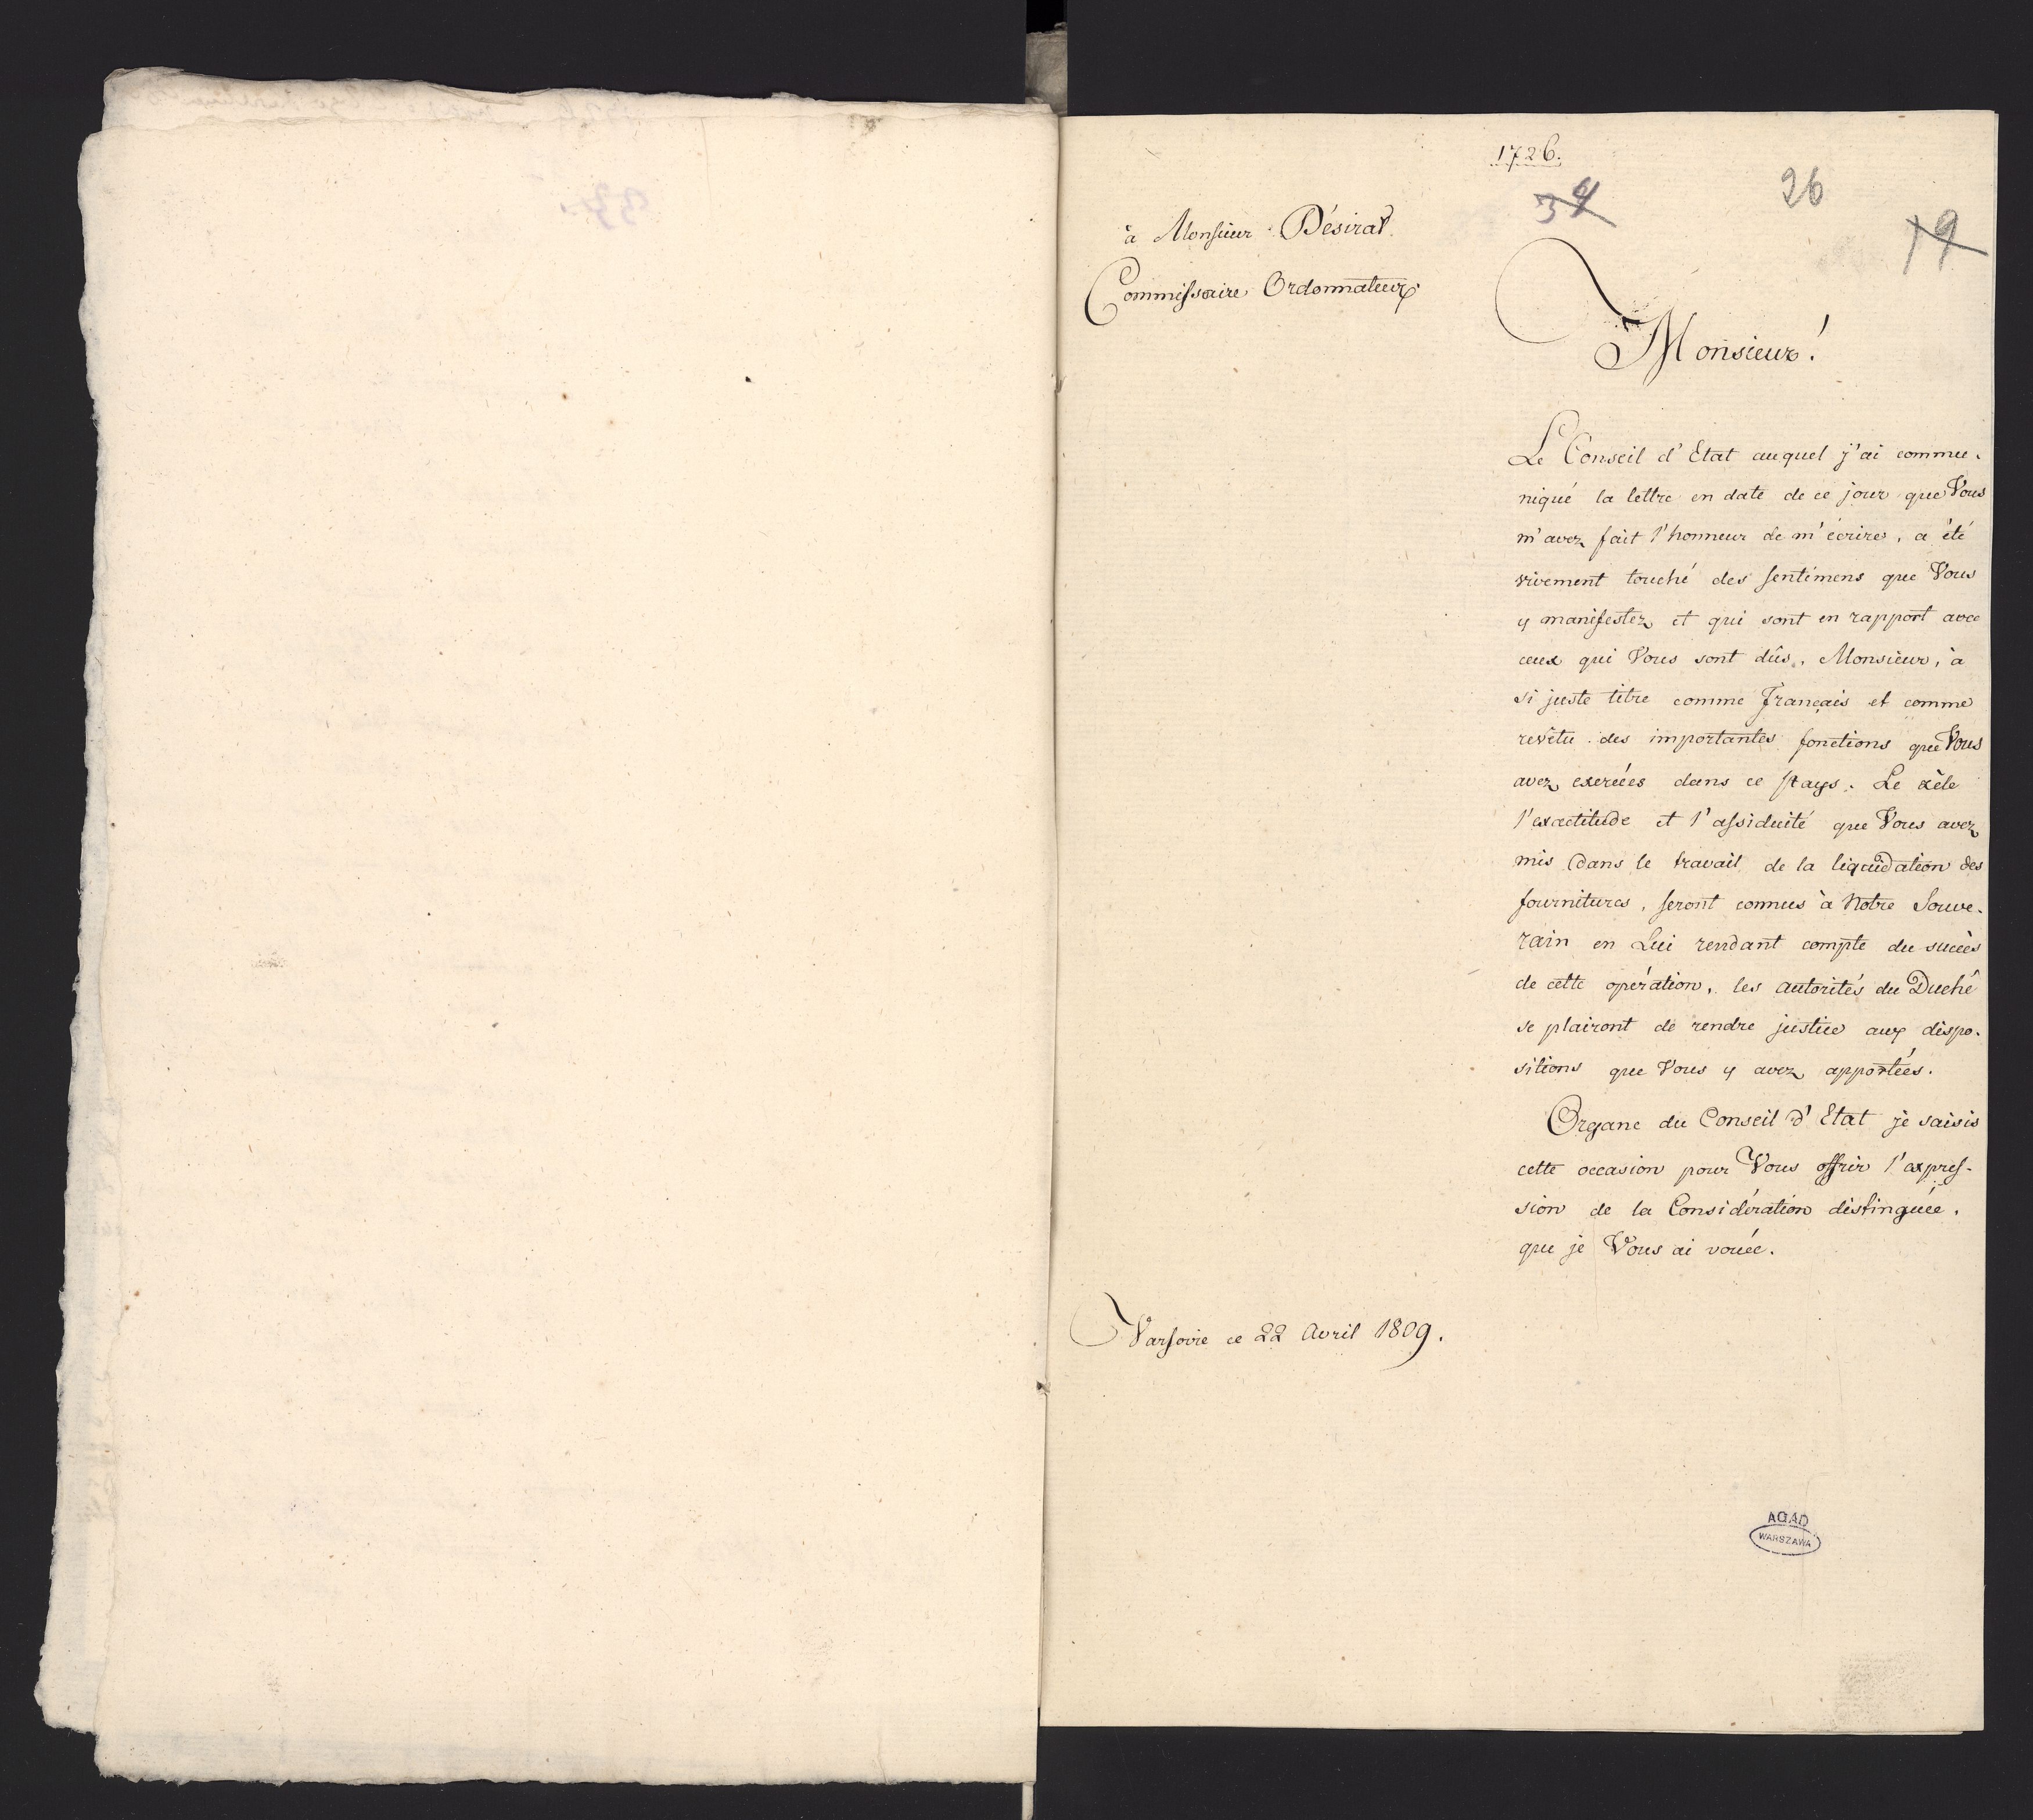 1726.
34
26
19
à Monsieur Désirat
Commissaire Ordonnateur
Monsieur!
Le Conseil d'Etat auquel j'ai commu-
niqué la lettre en date de ce jour que Vous
m'avez fait l'honneur de m'écrire, a été
vivement touché des sentimens que Vous
y manifestez et qui sont en rapport avec
ceux qui Vous sont dûs, Monsieur, à
si juste titre comme Français et comme
revêtu des importantes fonctions que Vous
avez exercées dans ce pays. Le zèle
l'exactitude et l'assiduité que Vous avez
mis dans le travail de la liquidation des
fournitures, seront connus à Notre Souve-
rain en Lui rendant compte du succès
de cette opération, les autorités du Duché
se plairont de rendre justice aux dispo-
sitions que Vous y avez apportées.
Organe du Conseil d'Etat je saisis
cette occasion pour Vous offrir l'expres-
sion de la Considération distinguée,
que je Vous ai vouée.
Varsovie ce 22 Avril 1809.
AGAD
WARSZAWA